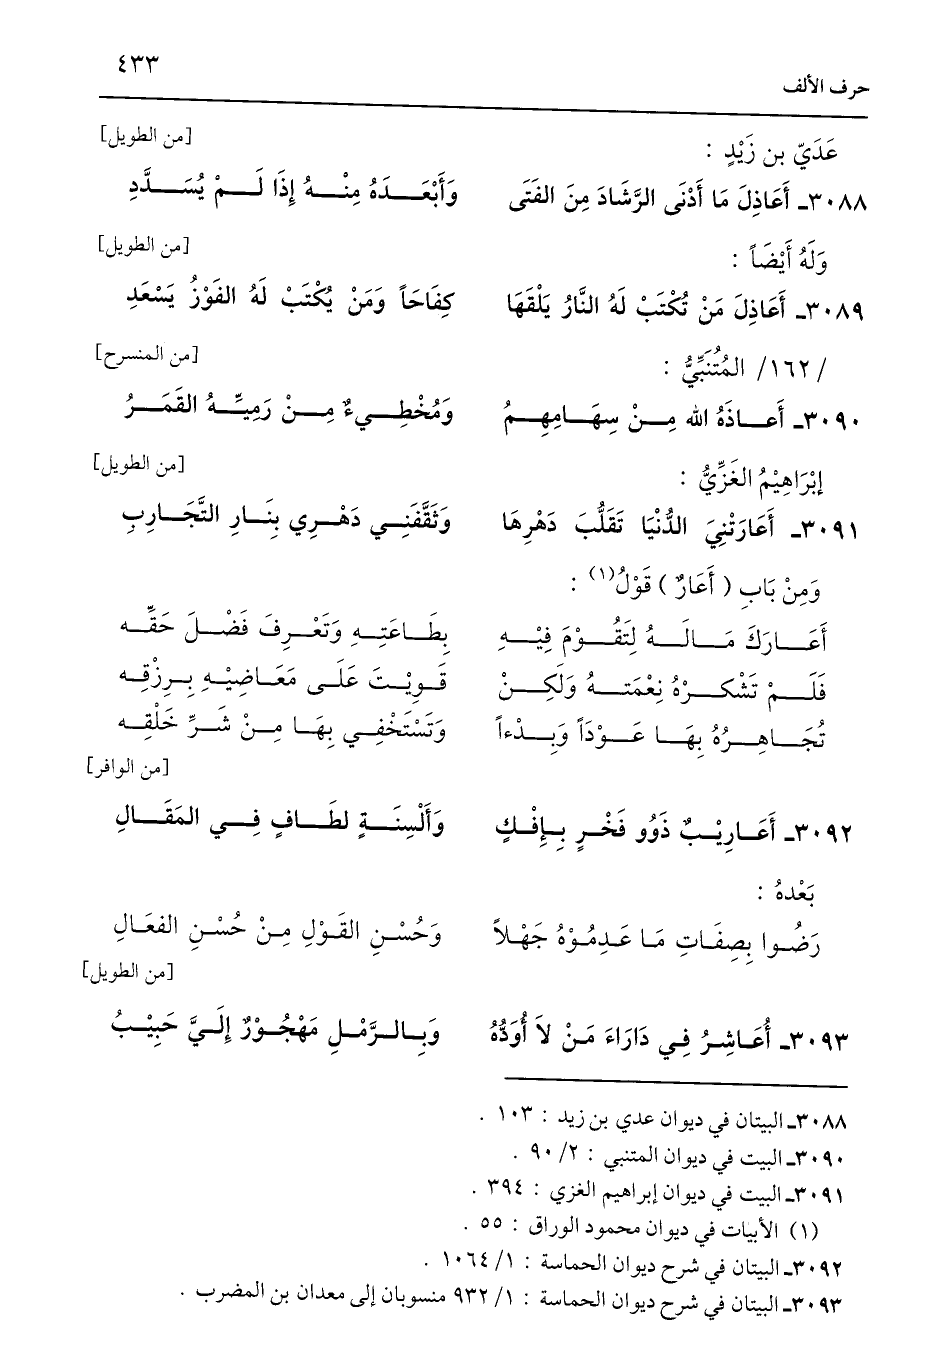 ٤٣٣
حرف الألف
عَدَيّ بن زَيْدٍ : [من الطويل]
٣٠٨٨ـ أَعَاذِلَ مَا أَدْنَى الرَّشَادَ مِنَ الفَتَى وَأَبْعَـــدَهُ مِنْـــهُ إِذَا لَـــمْ يُسَـــدَّدِ
وَلَهُ أَيْضَاً : [من الطويل]
٣٠٨٩ـ أَعَاذِلَ مَنْ تُكْتَبْ لَهُ النَّارُ يَلْقَهَا كِفَاحَاً وَمَنْ يُكْتَبْ لَهُ الفَوْزُ يَسْعَدِ
/١٦٢/ المُتَنَبِّيُّ : [من المنسرح]
٣٠٩٠ـ أَعـــاذَهُ الله مِـــنْ سِهَـــامِهِـــمُ وَمُخْطِـــيءٌ مِـــنْ رَمِيِّـــهُ القَمَـــرُ
إِبْرَاهِيْمُ الغَزِّيُّ : [من الطويل]
٣٠٩١ـ أَعَارَتْنِيَ الدُّنْيَا تَقَلُّبَ دَهْرِهَا وَثَقَّفَنِـــي دَهْـرِي بِنَـــارِ التَّجَـــارِبِ
وَمِنْ بَابِ ( أَعَارٌ ) قَوْلُ(١) :
أَعَـــارَكَ مَـــالَـــهُ لِتَقُـــوْمَ فِيْـــهِ بِطَـــاعَتِـــهِ وَتَعْـــرِفَ فَضْـــلَ حَقِّـــه
فَلَـــمْ تَشْكـــرْهُ نِعْمَتـــهُ وَلَكِـــنْ قَـــوِيْـــتَ عَلَـــى مَعَـــاصِيْـــهِ بِـــرِزْقِـــه
تُجَـــاهِـــرُهُ بِهَـــا عَـــوْدَاً وَبِـــدْءاً وَتَسْتَخْفِـــي بِهَـــا مِـــنْ شَـــرِّ خَلْقِـــه
[من الوافر]
٣٠٩٢ـ أَعَـــارِيْـــبٌ ذَوُو فَخْـــرٍ بِـــإِفْـــكٍ وَأَلْسِنَـــةٍ لطَـــافٍ فِـــي المَقَـــالِ
بَعْدهُ :
رَضُـــوا بِصِفَـــاتِ مَـــا عَـــدِمُـــوْهُ جَهْـــلاً وَحُسْـــنِ القَـــوْلِ مِـــنْ حُسْـــنِ الفعَـــالِ
[من الطويل]
٣٠٩٣ـ أُعَـــاشِـــرُ فِـــي دَارَاءَ مَـــنْ لاَ أُوَدُّهُ وَبِـــالـــرَّمْـــلِ مَهْجُـــوْرٌ إِلَـــيَّ حَبِيْـــبُ
٣٠٨٨ـ البيتان في ديوان عدي بن زيد : ١٠٣ .
٣٠٩٠ـ البيت في ديوان المتنبي : ٢/ ٩٠ .
٣٠٩١ـ البيت في ديوان إبراهيم الغزي : ٣٩٤ .
(١) الأبيات في ديوان محمود الوراق : ٥٥ .
٣٠٩٢ـ البيتان في شرح ديوان الحماسة : ١/ ١٠٦٤ .
٣٠٩٣ـ البيتان في شرح ديوان الحماسة : ١/ ٩٣٢ منسوبان إلى معدان بن المضرب .